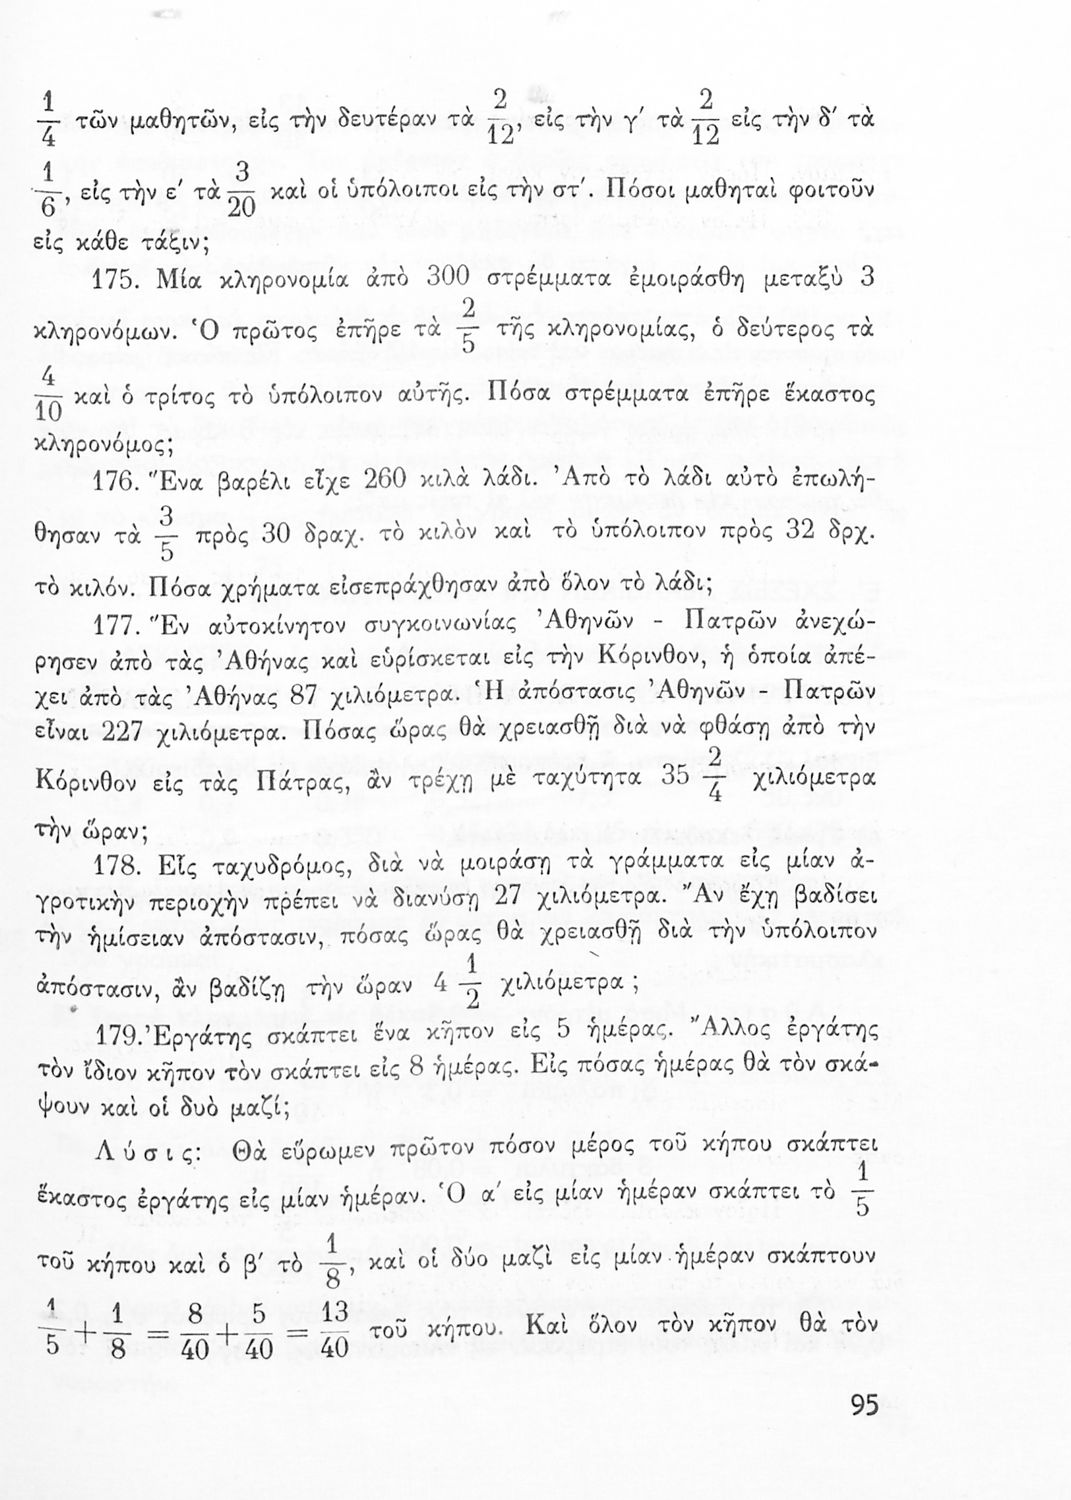 1/4 τῶν μαθητῶν, εἰς τὴν δευτέραν τὰ 2/12, εἰς τὴν γ′ τὰ 2/12 εἰς τὴν δ′ τὰ
1/6, εἰς τὴν ε′ τὰ 3/20 καὶ οἱ ὑπόλοιποι εἰς τὴν στ′. Πόσοι μαθηταὶ φοιτοῦν
εἰς κάθε τάξιν;
175. Μία κληρονομία ἀπὸ 300 στρέμματα ἐμοιράσθη μεταξὺ 3
κληρονόμων. Ὁ πρῶτος ἐπῆρε τὰ 2/5 τῆς κληρονομίας, ὁ δεύτερος τὰ
4/10 καὶ ὁ τρίτος τὸ ὑπόλοιπον αὐτῆς. Πόσα στρέμματα ἐπῆρε ἕκαστος
κληρονόμος;
176. Ἕνα βαρέλι εἶχε 260 κιλὰ λάδι. Ἀπὸ τὸ λάδι αὐτὸ ἐπωλή-
θησαν τὰ 3/5 πρὸς 30 δραχ. τὸ κιλὸν καὶ τὸ ὑπόλοιπον πρὸς 32 δρχ.
τὸ κιλόν. Πόσα χρήματα εἰσεπράχθησαν ἀπὸ ὅλον τὸ λάδι;
177. Ἓν αὐτοκίνητον συγκοινωνίας Ἀθηνῶν - Πατρῶν ἀνεχώ-
ρησεν ἀπὸ τὰς Ἀθήνας καὶ εὑρίσκεται εἰς τὴν Κόρινθον, ἡ ὁποία ἀπέ-
χει ἀπὸ τὰς Ἀθήνας 87 χιλιόμετρα. Ἡ ἀπόστασις Ἀθηνῶν - Πατρῶν
εἶναι 227 χιλιόμετρα. Πόσας ὥρας θὰ χρειασθῇ διὰ νὰ φθάσῃ ἀπὸ τὴν
Κόρινθον εἰς τὰς Πάτρας, ἂν τρέχῃ μὲ ταχύτητα 35 2/4 χιλιόμετρα
τὴν ὥραν;
178. Εἷς ταχυδρόμος, διὰ νὰ μοιράσῃ τὰ γράμματα εἰς μίαν ἀ-
γροτικὴν περιοχὴν πρέπει νὰ διανύσῃ 27 χιλιόμετρα. Ἂν ἔχῃ βαδίσει
τὴν ἡμίσειαν ἀπόστασιν, πόσας ὥρας θὰ χρειασθῇ διὰ τὴν ὑπόλοιπον
ἀπόστασιν, ἂν βαδίζῃ τὴν ὥραν 4 1/2 χιλιόμετρα ;
179. Ἐργάτης σκάπτει ἕνα κῆπον εἰς 5 ἡμέρας. Ἄλλος ἐργάτης
τὸν ἴδιον κῆπον τὸν σκάπτει εἰς 8 ἡμέρας. Εἰς πόσας ἡμέρας θὰ τὸν σκά-
ψουν καὶ οἱ δυὸ μαζί;
Λύσις: Θὰ εὕρωμεν πρῶτον πόσον μέρος τοῦ κήπου σκάπτει
ἕκαστος ἐργάτης εἰς μίαν ἡμέραν. Ὁ α′ εἰς μίαν ἡμέραν σκάπτει τὸ 1/5
τοῦ κήπου καὶ ὁ β′ τὸ 1/8, καὶ οἱ δύο μαζὶ εἰς μίαν ἡμέραν σκάπτουν
1/5 + 1/8 = 8/40 + 5/40 = 13/40 τοῦ κήπου. Καὶ ὅλον τὸν κῆπον θὰ τὸν
95